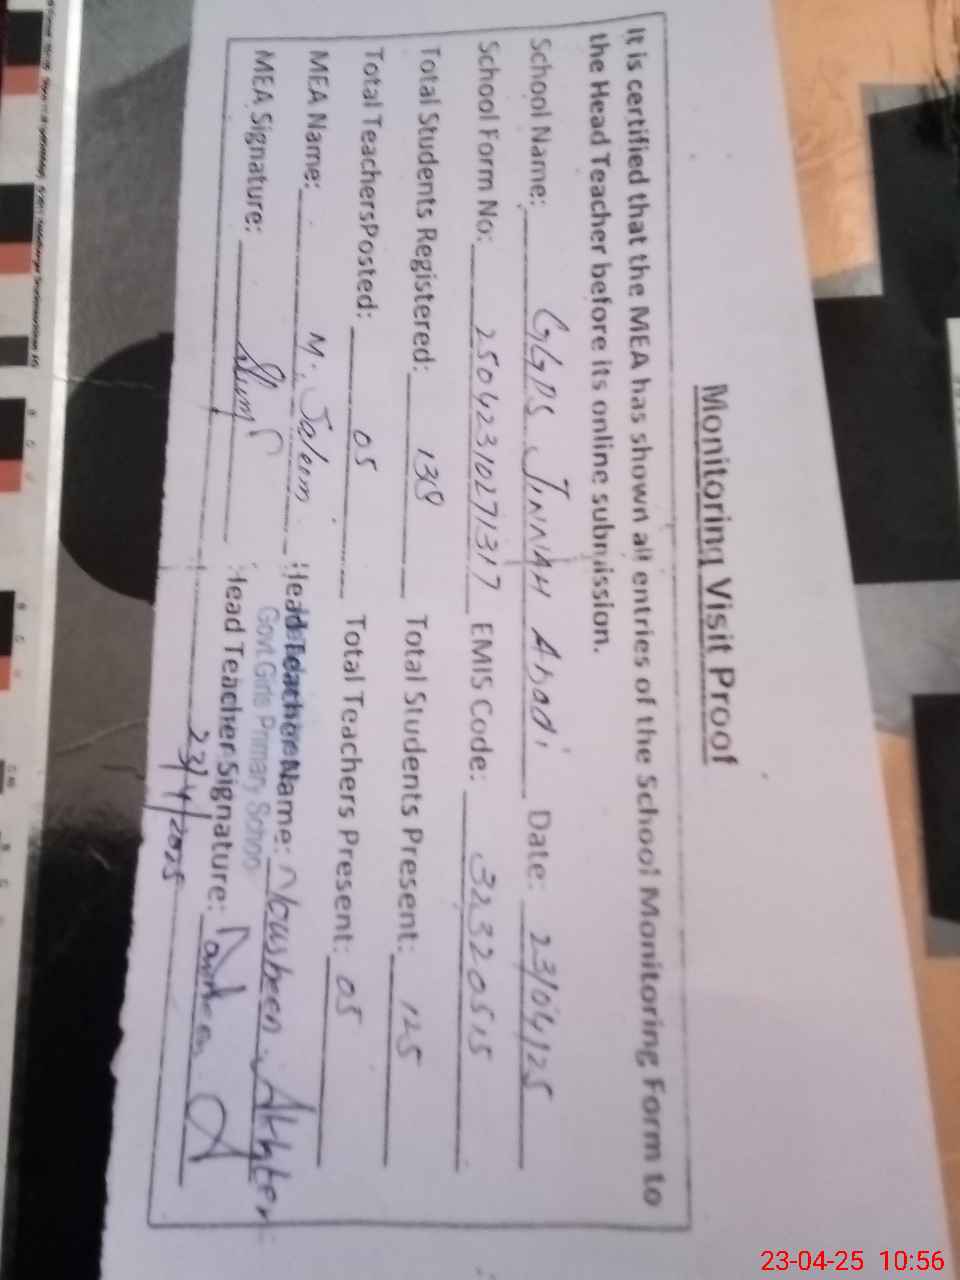 Monitoring Visit Proof
It is certified that the MEA has shown all entries of the School Monitoring Form to
the Head Teacher before its online submission.
School Name: GGPS JINNAH Abadi Date: 23/04/25
School Form No: 25042310271317 EMIS Code: 32320515
Total Students Registered: 138 Total Students Present: 125
Total TeachersPosted: 05 Total Teachers Present: 05
MEA Name: M. Saleem Head Teacher Name: Nousheen Akhter
Govt Girls Primary School
MEA Signature: Head Teacher Signature: Nousheen A
23/4/2025
23-04-25 10:56